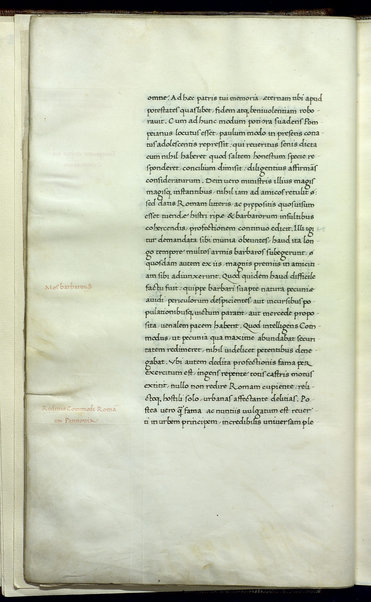 omne. Ad hec patris tui memoria æternam tibi apud
potestates quaslibet, fidem atq; beniuolentiam robo
rauit. Cum ad hunc modum potiora suadens Pom
peianus locutus esset, paulum modo in presens cona
tus adolescentis repressit, qui ueritus senis dicta
cum nihil haberet quod saltem honestum specie re
sponderet, concilium dimisit, diligentius affirmans
consideraturum. Dein uero ministris illius magis
magisq; instantibus, nihil iam ad amicos retulit, s
sed datis Romam litteris, ac prępositis quos uisum
esset tuendę histri ripę & barbarorum insultibus
cohercendis, profectionem continuo edicit. Illi igi
tur demandata sibi munia obeuntes, haud ita lon
go tempore multos armis barbaros subegerunt, s
quosdam autem ex iis, magnis premiis in amiciti
am sibi adiunxerunt. Quod quidem haud difficile
factu fuit, quippe barbari suapte natura pecunię
auidi, periculorum despicientes, aut incursibus po
pulationibusq; uictum parant, aut mercede propo
sita, uenalem pacem habent. Quod intelligens Com
modus, ut pecunia qua maxime abundabat secu
tatem redimeret, nihil uidelicet petentibus dene
gabat. Vbi autem dedita profectionis fama per
exercitum est, ingens repente totis castris motus
extitit, nullo non redire Romam cupiente, reli
ctoq; hostili solo, urbanas affectante delitias. Po
stea uero q̃ fama, ac nuntiis uulgatum est reuer
ti in urbem principem, incredibilis uniuersam ple
barbarorũ
Reditus Commodi Romã
ex Pannonia